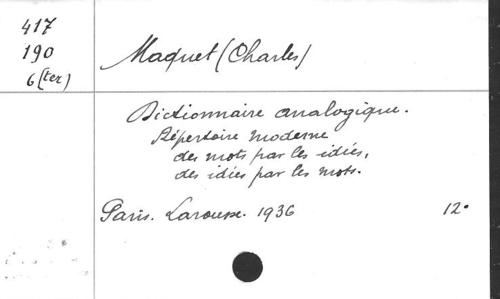 417
190
6 (ter)
Maquet (Charles)
Dictionnaire analogique.
Répertoire moderne
des mots par les idées,
des idées par les mots.
Paris. Larousse. 1936 12°